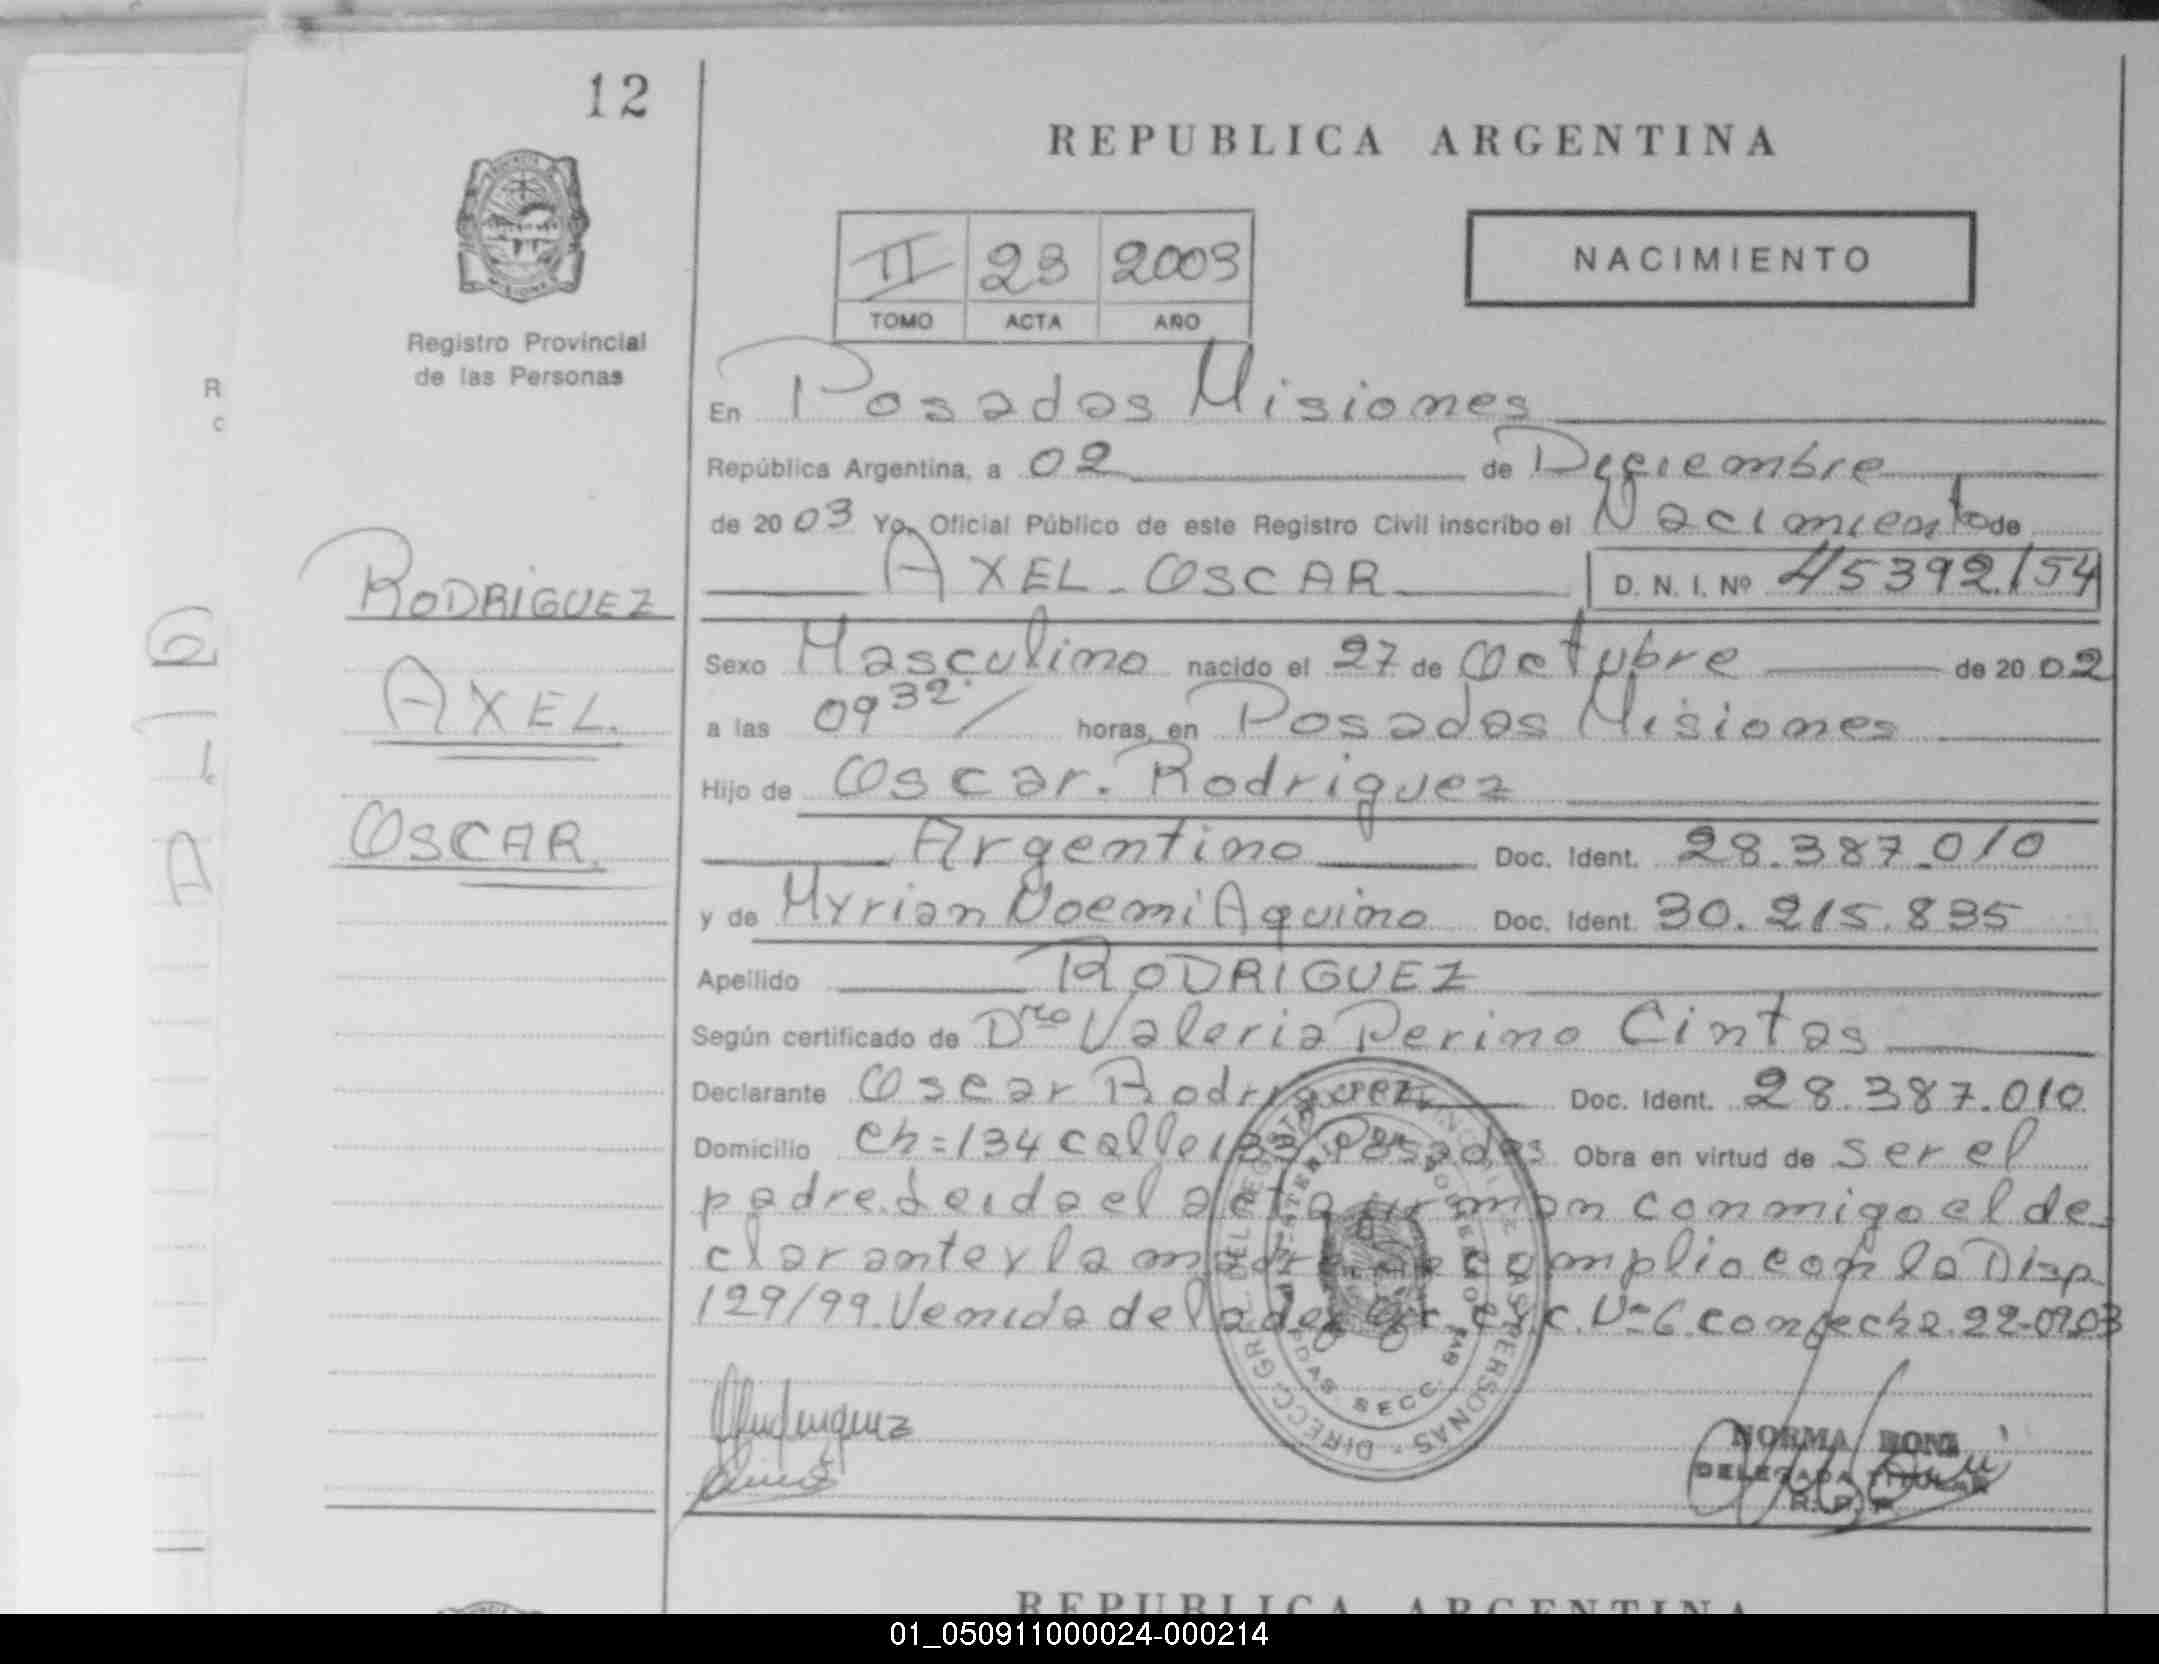 12
REPUBLICA ARGENTINA
II 23 2003
TOMO ACTA AÑO
NACIMIENTO
Registro Provincial
de las Personas
En Posadas Misiones
República Argentina, a 02 de Deciembre
de 2003 Yo, Oficial Público de este Registro Civil inscribo el Nacimiento de
AXEL - OSCAR D. N. I. Nº 45392154
RODRIGUEZ
AXEL.
OSCAR.
Sexo Masculino nacido el 27 de Octubre de 2002
a las 09 32 horas, en Posadas Misiones
Hijo de Oscar. Rodriguez
Argentino Doc. Ident. 28.387.010
y de Myrian Noemi Aquino Doc. Ident. 30.215.835
Apellido RODRIGUEZ
Según certificado de Dra Valeria Perino Cintas
Declarante Oscar Rodriguez Doc. Ident. 28.387.010
Domicilio Ch=134 calle 133 Posadas Obra en virtud de ser el
padre. Leida el acta firman conmigo el de
clarante y la madre se complio con la Disp
129/99. Venida de la con fecha 22-09.03
NORMA BONI
DELEGADA TITULAR
R. P. P.
REPUBLICA ARGENTINA
01_050911000024-000214